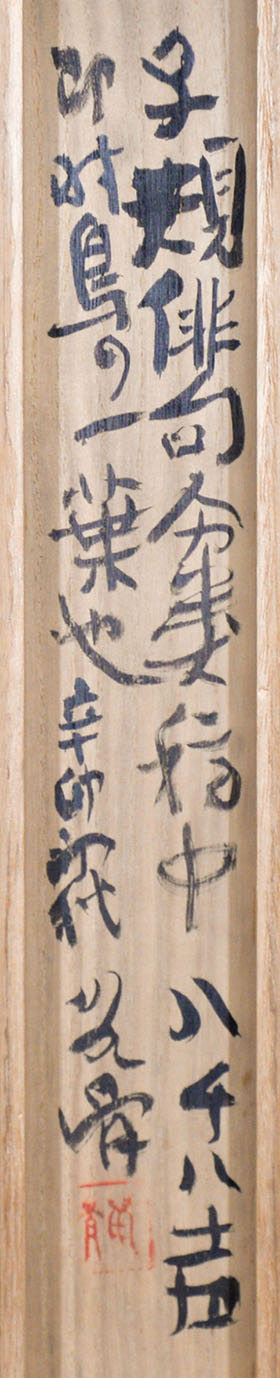 子規俳句分類稿中 八千八声
即時鳥の一葉也 辛卯初秋 骨